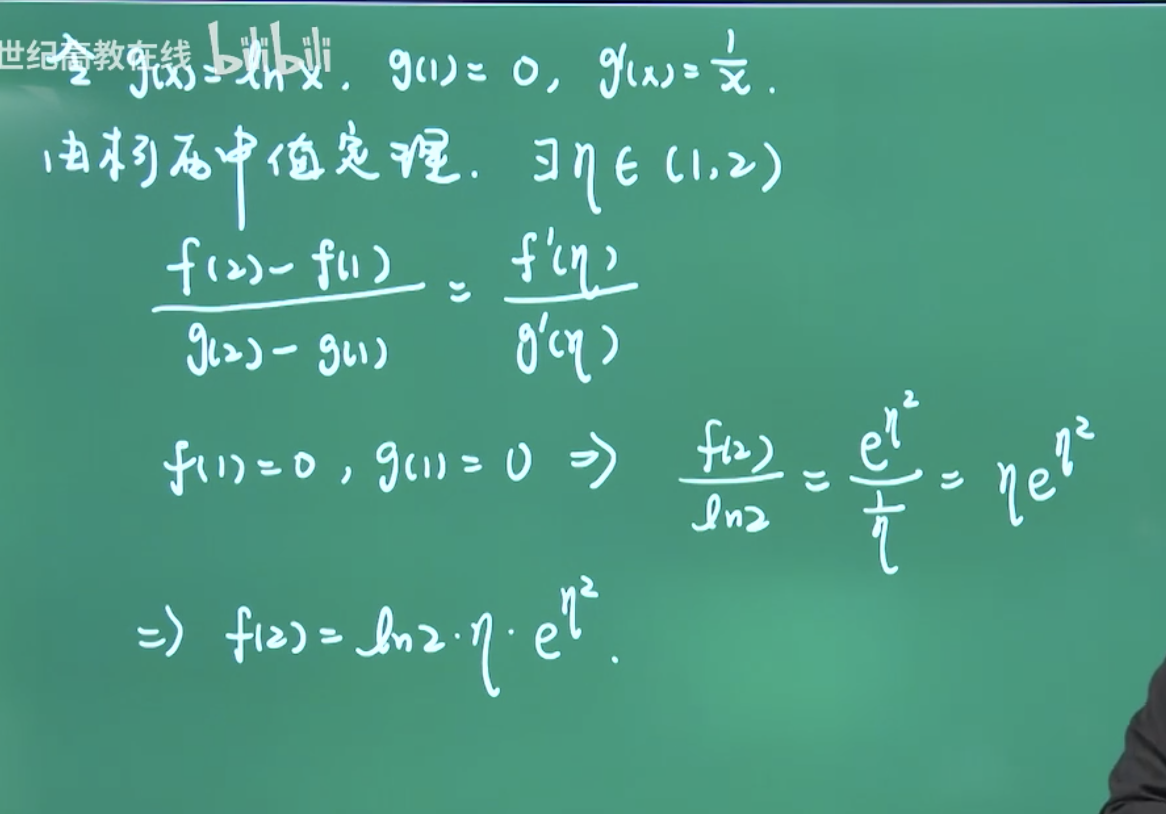 世纪高教在线 bilibili
令 g(x)=ln x. g(1)=0, g'(x)=1/x.
由柯西中值定理. ∃η∈(1,2)
(f(2)-f(1))/(g(2)-g(1)) = f'(η)/g'(η)
f(1)=0, g(1)=0 ⇒ f(2)/ln2 = e^{η^2}/(1/η) = ηe^{η^2}
⇒ f(2)=ln2·η·e^{η^2}.